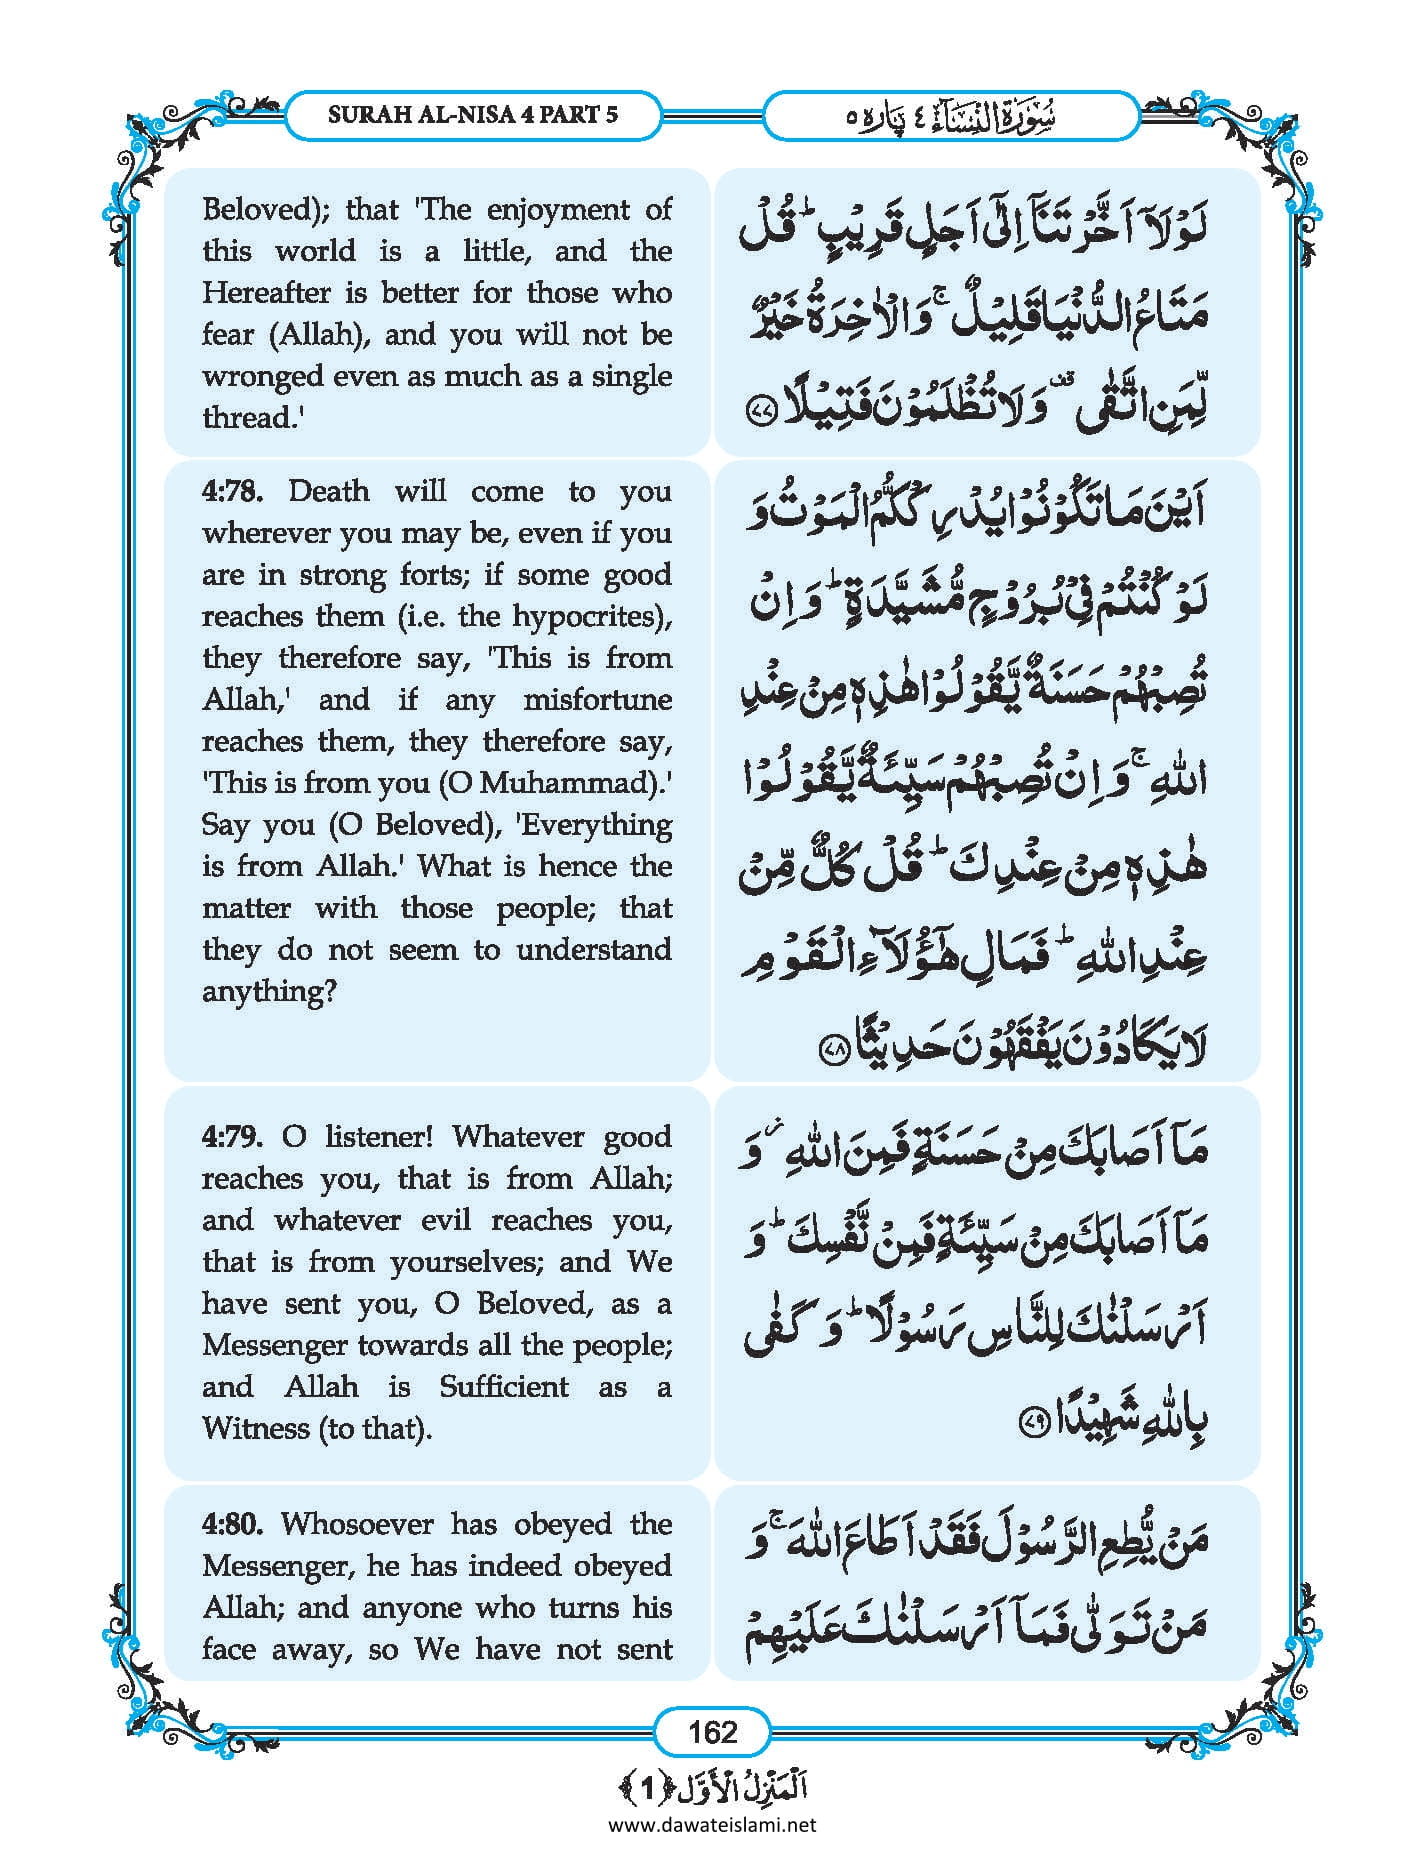 SURAH AL-NISA 4 PART 5
سُوۡرَةُ النِّسَآء ٤ پَارہ ٥
Beloved); that 'The enjoyment of
this world is a little, and the
Hereafter is better for those who
fear (Allah), and you will not be
wronged even as much as a single
thread.'
لَوۡلَاۤ اَخَّرۡتَنَاۤ اِلٰۤى اَجَلٍ قَرِیۡبٍ ؕ قُلۡ
مَتَاعُ الدُّنۡیَا قَلِیۡلٌ ۚ وَ الۡاٰخِرَةُ خَیۡرٌ
لِّمَنِ اتَّقٰى ۟ وَ لَا تُظۡلَمُوۡنَ فَتِیۡلًا ﴿۷۷﴾
4:78. Death will come to you
wherever you may be, even if you
are in strong forts; if some good
reaches them (i.e. the hypocrites),
they therefore say, 'This is from
Allah,' and if any misfortune
reaches them, they therefore say,
'This is from you (O Muhammad).'
Say you (O Beloved), 'Everything
is from Allah.' What is hence the
matter with those people; that
they do not seem to understand
anything?
اَیۡنَ مَا تَكُوۡنُوۡا یُدۡرِكۡكُّمُ الۡمَوۡتُ وَ
لَوۡ كُنۡتُمۡ فِیۡ بُرُوۡجٍ مُّشَیَّدَةٍ ؕ وَ اِنۡ
تُصِبۡهُمۡ حَسَنَةٌ یَّقُوۡلُوۡا هٰذِهٖ مِنۡ عِنۡدِ
اللّٰهِ ۚ وَ اِنۡ تُصِبۡهُمۡ سَیِّئَةٌ یَّقُوۡلُوۡا
هٰذِهٖ مِنۡ عِنۡدِكَ ؕ قُلۡ كُلٌّ مِّنۡ
عِنۡدِ اللّٰهِ ؕ فَمَالِ هٰۤؤُلَآءِ الۡقَوۡمِ
لَا یَكَادُوۡنَ یَفۡقَهُوۡنَ حَدِیۡثًا ﴿۷۸﴾
4:79. O listener! Whatever good
reaches you, that is from Allah;
and whatever evil reaches you,
that is from yourselves; and We
have sent you, O Beloved, as a
Messenger towards all the people;
and Allah is Sufficient as a
Witness (to that).
مَاۤ اَصَابَكَ مِنۡ حَسَنَةٍ فَمِنَ اللّٰهِ ۫ وَ
مَاۤ اَصَابَكَ مِنۡ سَیِّئَةٍ فَمِنۡ نَّفۡسِكَ ؕ وَ
اَرۡسَلۡنٰكَ لِلنَّاسِ رَسُوۡلًا ؕ وَ كَفٰى
بِاللّٰهِ شَهِیۡدًا ﴿۷۹﴾
4:80. Whosoever has obeyed the
Messenger, he has indeed obeyed
Allah; and anyone who turns his
face away, so We have not sent
مَنۡ یُّطِعِ الرَّسُوۡلَ فَقَدۡ اَطَاعَ اللّٰهَ ۚ وَ
مَنۡ تَوَلّٰى فَمَاۤ اَرۡسَلۡنٰكَ عَلَیۡهِمۡ
162
اَلۡمَنۡزِلُ الۡاَوَّل ﴿1﴾
www.dawateislami.net